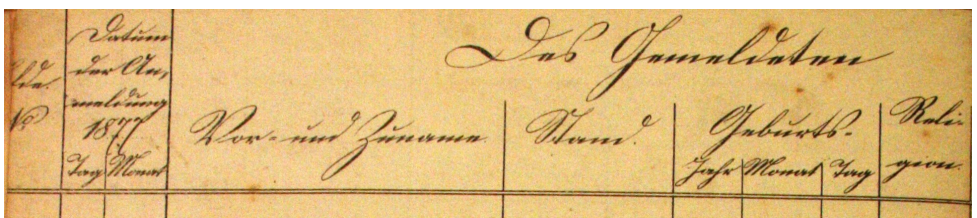 lfde.
No
Datum
der An-
meldung
1877
Tag Monat
Des Gemeldeten
Vor- und Zuname.
Stand.
Geburts-
Jahr Monat Tag
Reli-
gion.